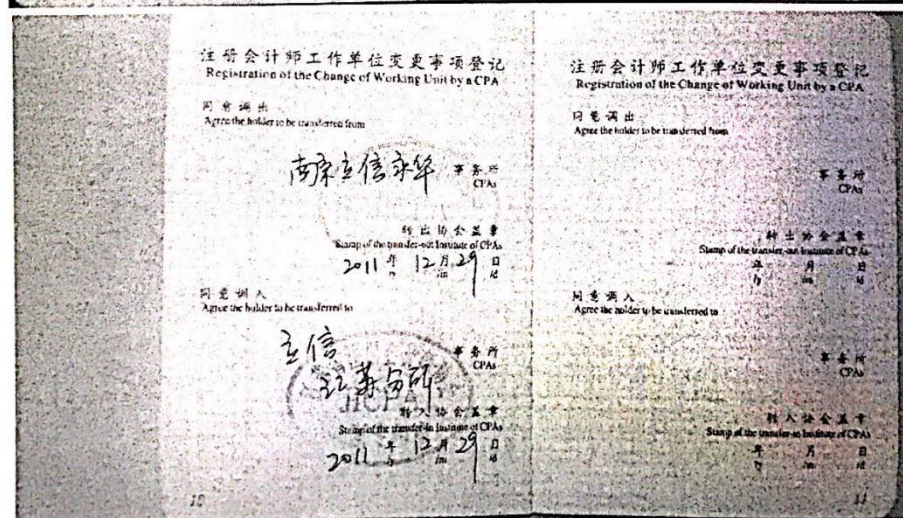 注册会计师工作单位变更事项登记
Registration of the Change of Working Unit by a CPA
同意调出
Agree the holder to be transferred from
南京立信永华 事务所
CPAs
转出协会盖章
Stamp of the transfer-out Institute of CPAs
2011 年 12 月 29 日
/y /m /d
同意调入
Agree the holder to be transferred to
立信
江苏分所 事务所
CPAs
JICPA
转入协会盖章
Stamp of the transfer-in Institute of CPAs
2011 年 12 月 29 日
/y /m /d
10
注册会计师工作单位变更事项登记
Registration of the Change of Working Unit by a CPA
同意调出
Agree the holder to be transferred from
事务所
CPAs
转出协会盖章
Stamp of the transfer-out Institute of CPAs
年 月 日
/y /m /d
同意调入
Agree the holder to be transferred to
事务所
CPAs
转入协会盖章
Stamp of the transfer-in Institute of CPAs
年 月 日
/y /m /d
11